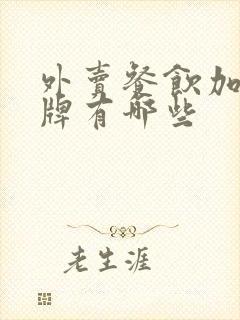 外賣餐飲加
牌有哪些
老生涯